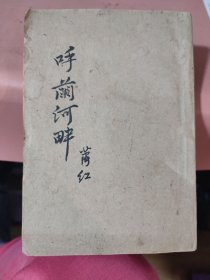 呼蘭河畔
蕭红